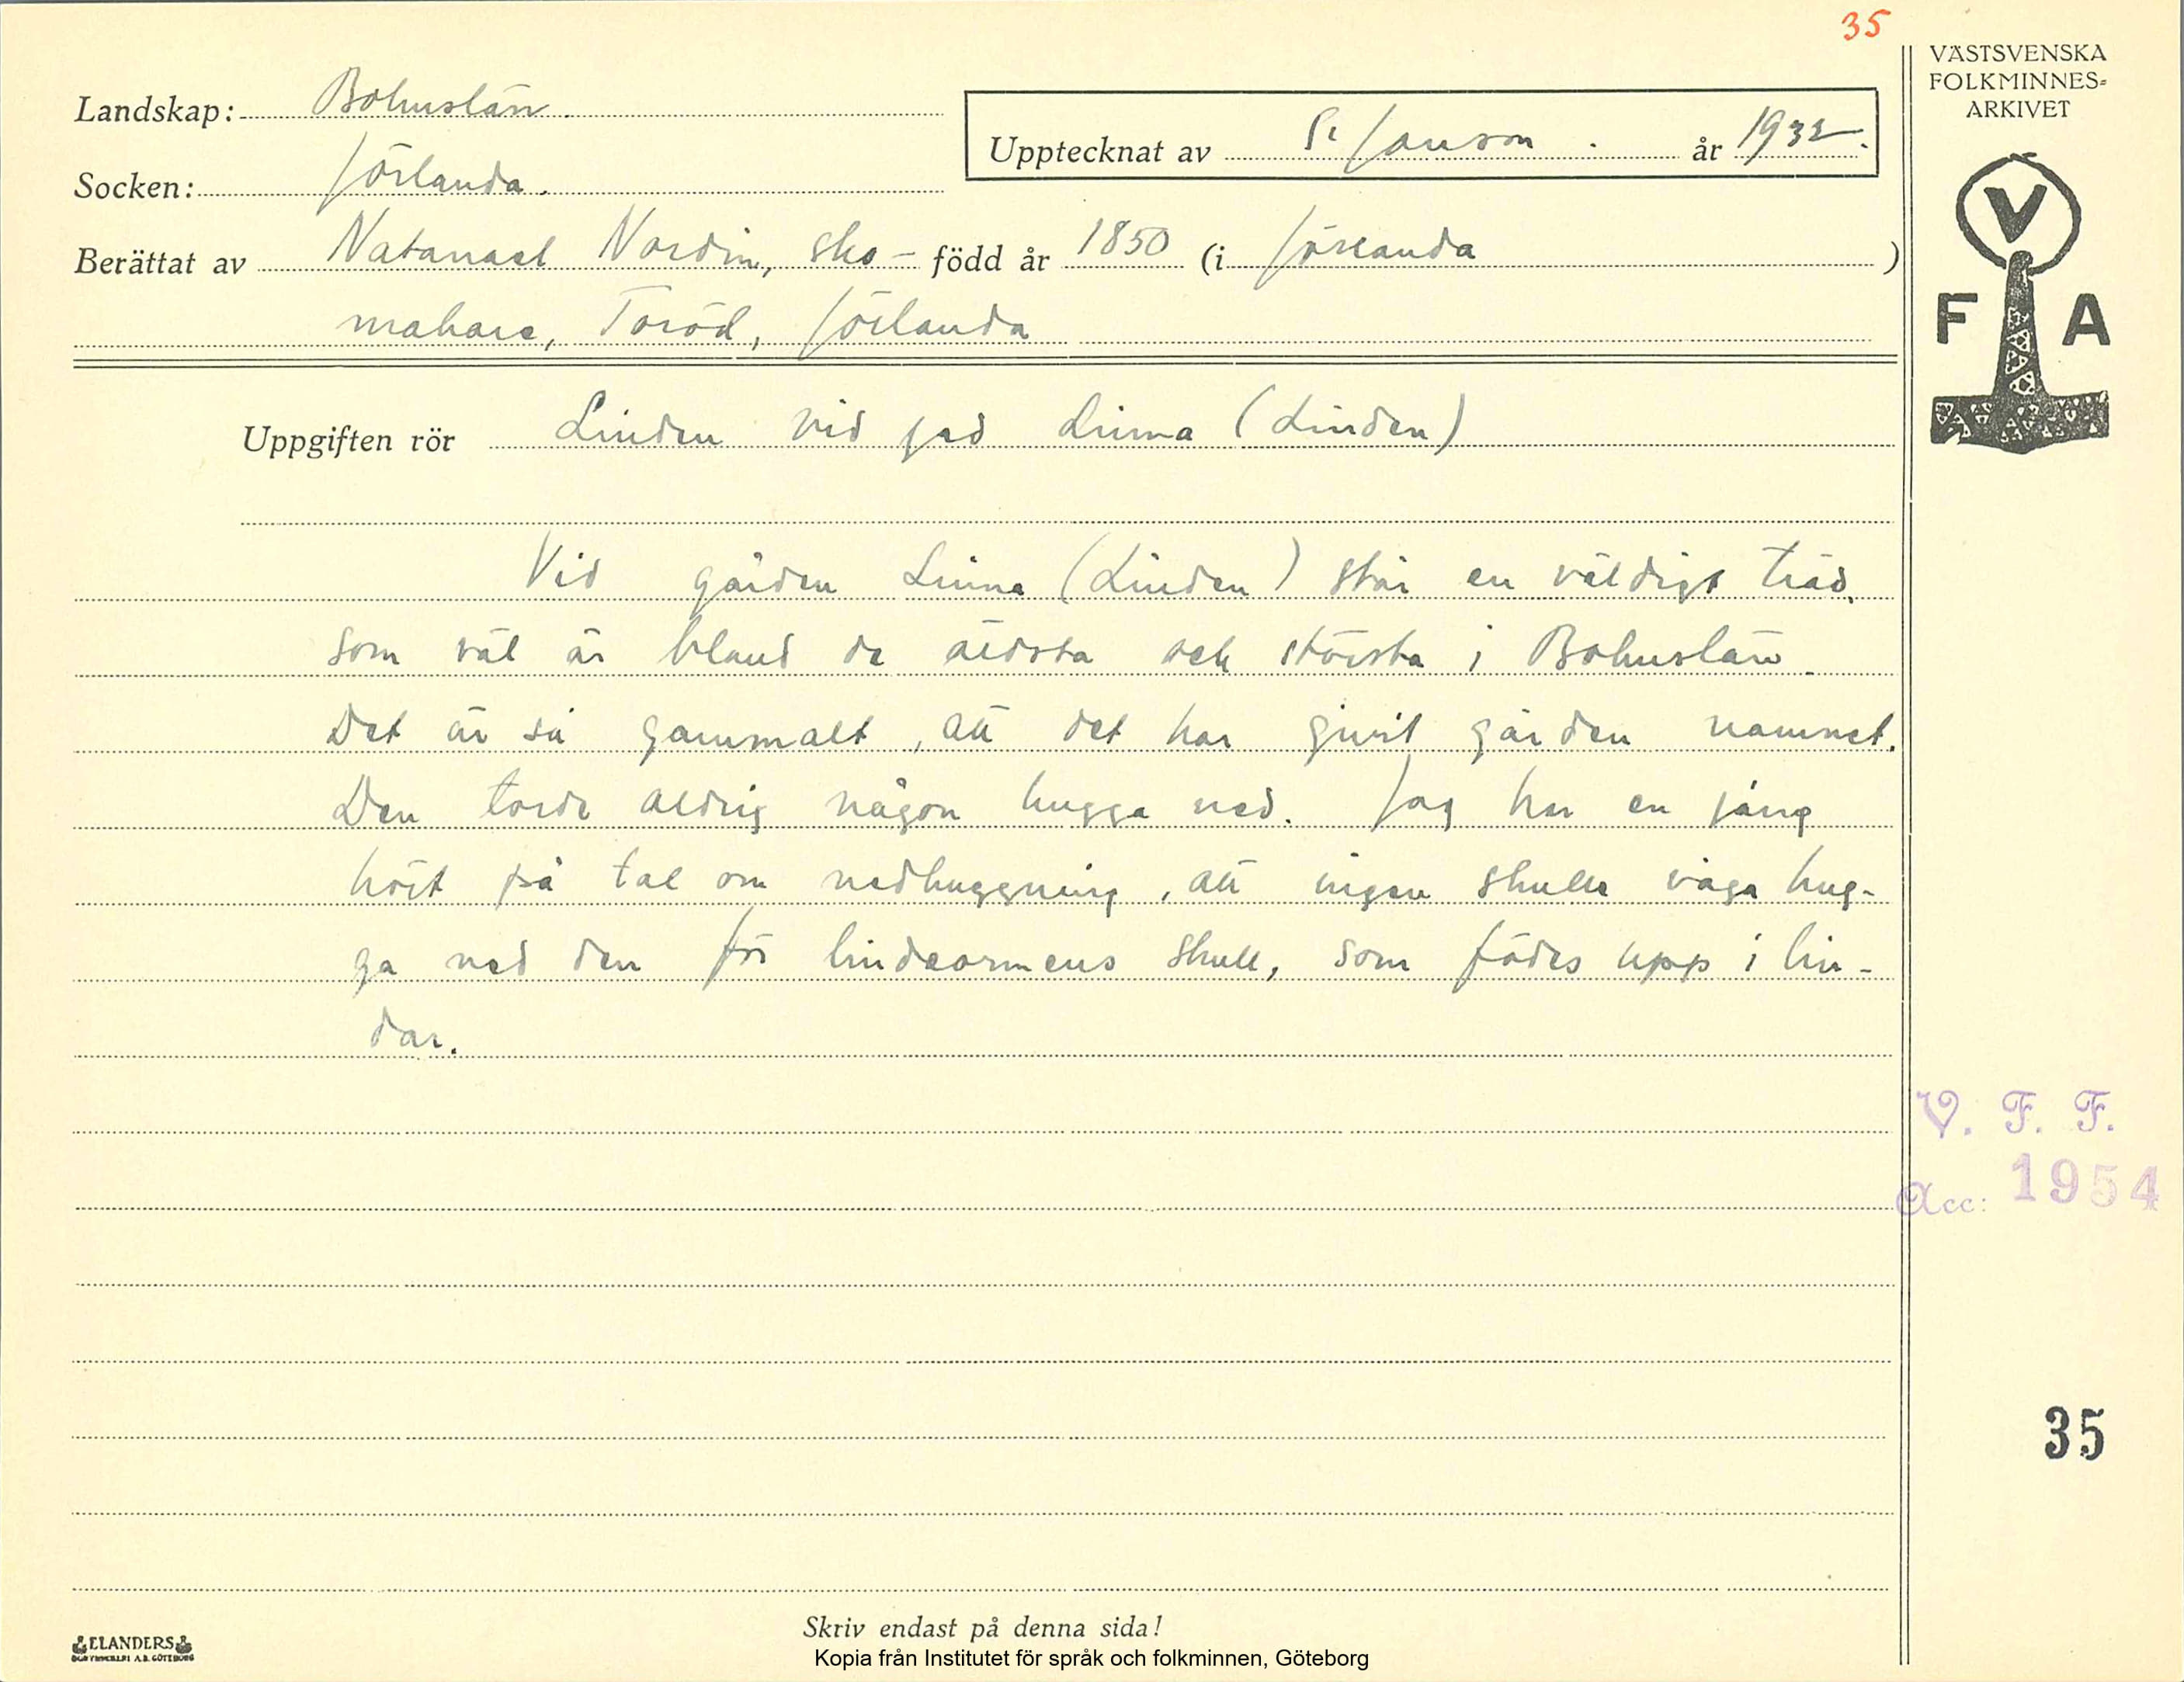 35
VÄSTSVENSKA
FOLKMINNES=
ARKIVET
Landskap: Bohuslän.
Upptecknat av S. Janson. år 1932.
Socken: Jörlanda.
Berättat av Natanael Nordin, sko- född år 1850 (i Jörlanda)
makare, Toröd, Jörlanda
V
F A
Uppgiften rör Linden vid Linna (Linden)
Vid gården Linna (Linden) står en väldigt träd,
som väl är bland de äldsta och största i Bohuslän.
Det är så gammalt, att det har givit gården namnet.
Den torde aldrig någon hugga ned. Jag har en gång
hört på tal om nedhuggning, att ingen skulle våga hug-
ga ned den för lindeormens skull, som födes upp i lin-
dar.
V. F. F.
Acc: 1954
35
Skriv endast på denna sida!
ELANDERS
BOKTRYCKERI A.B. GÖTEBORG
Kopia från Institutet för språk och folkminnen, Göteborg